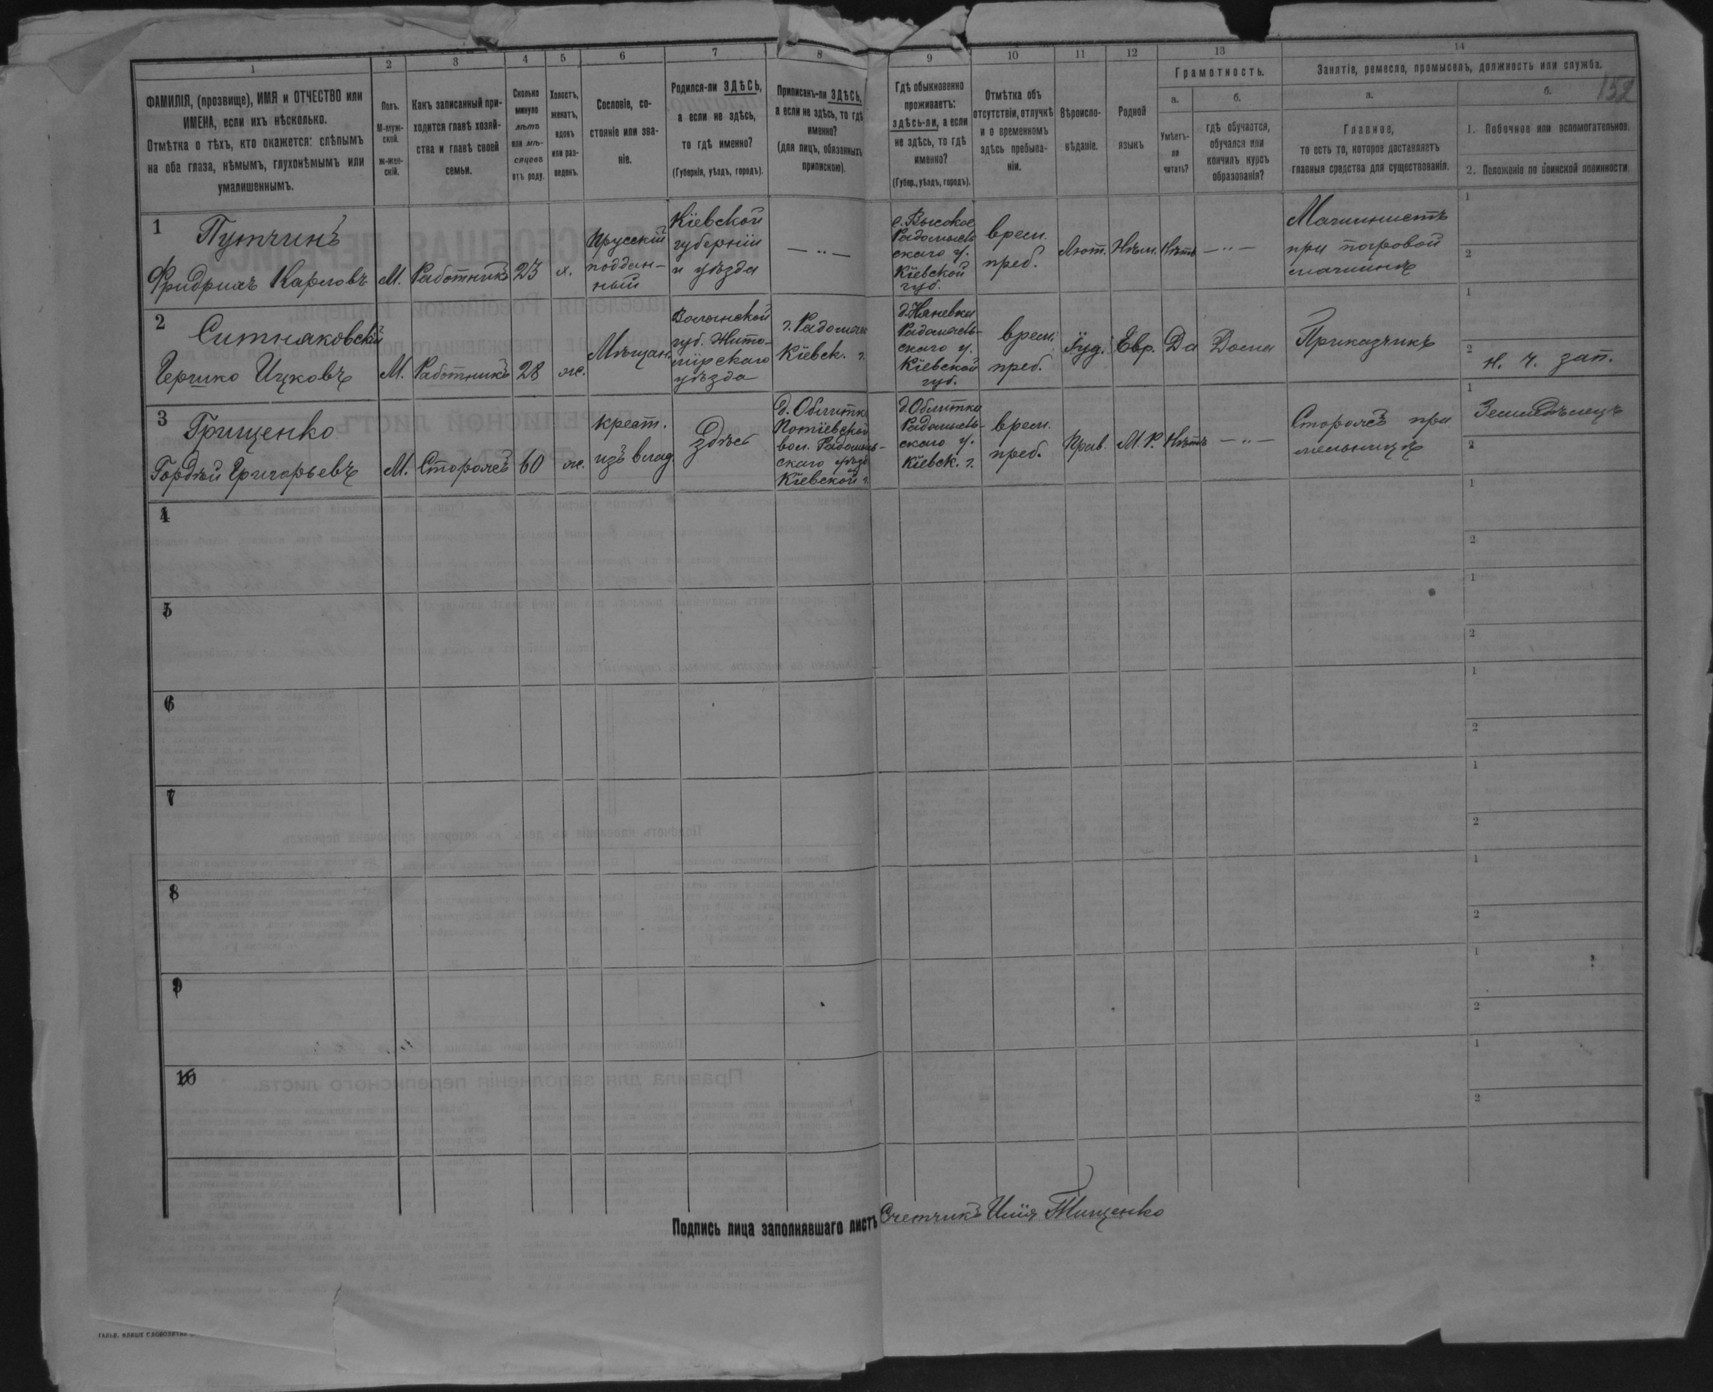 1
2
3
4
5
6
7
8
9
10
11
12
13
14
152
ФАМИЛІЯ, (прозвище), ИМЯ и ОТЧЕСТВО или
ИМЕНА, если ихъ нѣсколько.
Отмѣтка о тѣхъ, кто окажется: слѣпымъ
на оба глаза, нѣмымъ, глухонѣмымъ или
умалишеннымъ.
Полъ.
М-муж-
ской.
Ж-жен-
скій.
Какъ записанный при-
ходится главѣ хозяй-
ства и главѣ своей
семьи.
Сколько
минуло
лѣтъ
или мѣ-
сяцевъ
отъ роду.
Холостъ,
женатъ,
вдовъ
или раз-
веденъ.
Сословіе, со-
стояніе или зва-
ніе.
Родился-ли ЗДѢСЬ,
а если не здѣсь,
то гдѣ именно?
(Губернія, уѣздъ, городъ).
Приписанъ-ли ЗДѢСЬ,
а если не здѣсь, то гдѣ
именно?
(для лицъ, обязанныхъ
припискою).
Гдѣ обыкновенно
проживаетъ:
здѣсь-ли, а если
не здѣсь, то гдѣ
именно?
(Губер., уѣздъ, городъ).
Отмѣтка объ
отсутствіи, отлучкѣ
и о временномъ
здѣсь пребыва-
ніи.
Вѣроиспо-
вѣданіе.
Родной
языкъ
Грамотность.
а.
Умѣетъ-
ли
читать?
б.
гдѣ обучается,
обучался или
кончилъ курсъ
образованія?
Занятіе, ремесло, промыселъ, должность или служба.
а.
Главное,
то есть то, которое доставляетъ
главныя средства для существованія.
б.
1. Побочное или вспомогательное.
2. Положеніе по воинской повинности
1
Путчинъ
Фридрихъ Карловъ
М.
Работникъ
23
х.
Прусскій
поддан-
ный
Кіевской
губерніи
и уѣзда
— " —
с. Высокое
Радомысль-
скаго у.
Кіевской
губ.
врем.
преб.
Лют.
Нѣм.
Нѣтъ
— " —
Машинистъ
при паровой
машинѣ
1
2
2
Ситняковскій
Гершко Ицковъ
М.
Работникъ
28
ж.
Мѣщан.
Волынской
губ. Жито-
мірскаго
уѣзда
г. Радомысль
Кіевск. г.
Радомысль-
скаго у.
Кіевской
губ.
врем.
преб.
Іуд.
Евр.
Да
Дома
Приказчикъ
1
2
н. ч. зап.
3
Грищенко
Гордѣй Григорьевъ
М.
Сторожъ
60
ж.
крест.
изъ влад.
Здѣсь
д. Облитки
Потіевской
вол. Радомысль-
скаго уѣзд.
Кіевской г.
д. Облитки
Радомысль-
скаго у.
Кіевск. г.
врем.
преб.
Прав.
М. Р.
Нѣтъ
— " —
Сторожъ при
мельницѣ
1
Земледѣлецъ
2
4
1
2
5
1
2
6
1
2
7
1
2
8
1
2
9
1
2
10
1
2
Подпись лица заполнявшаго листъ Счетчикъ Илія Тищенко